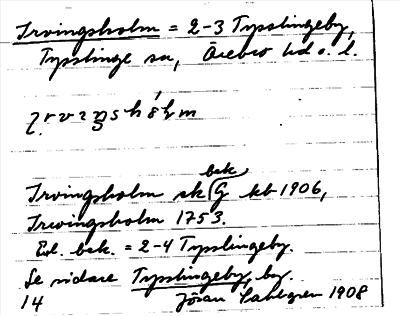 Irvingsholm = 2-3 Tysslingeby,
Tysslinge sn, Örebro hd o. l.
Irvingsholm sk (G bek kb 1906,
Irwingsholm 1753.
Enl. bek. = 2-4 Tysslingeby.
Se vidare Tysslingeby, by.
14 Jöran Sahlgren 1908